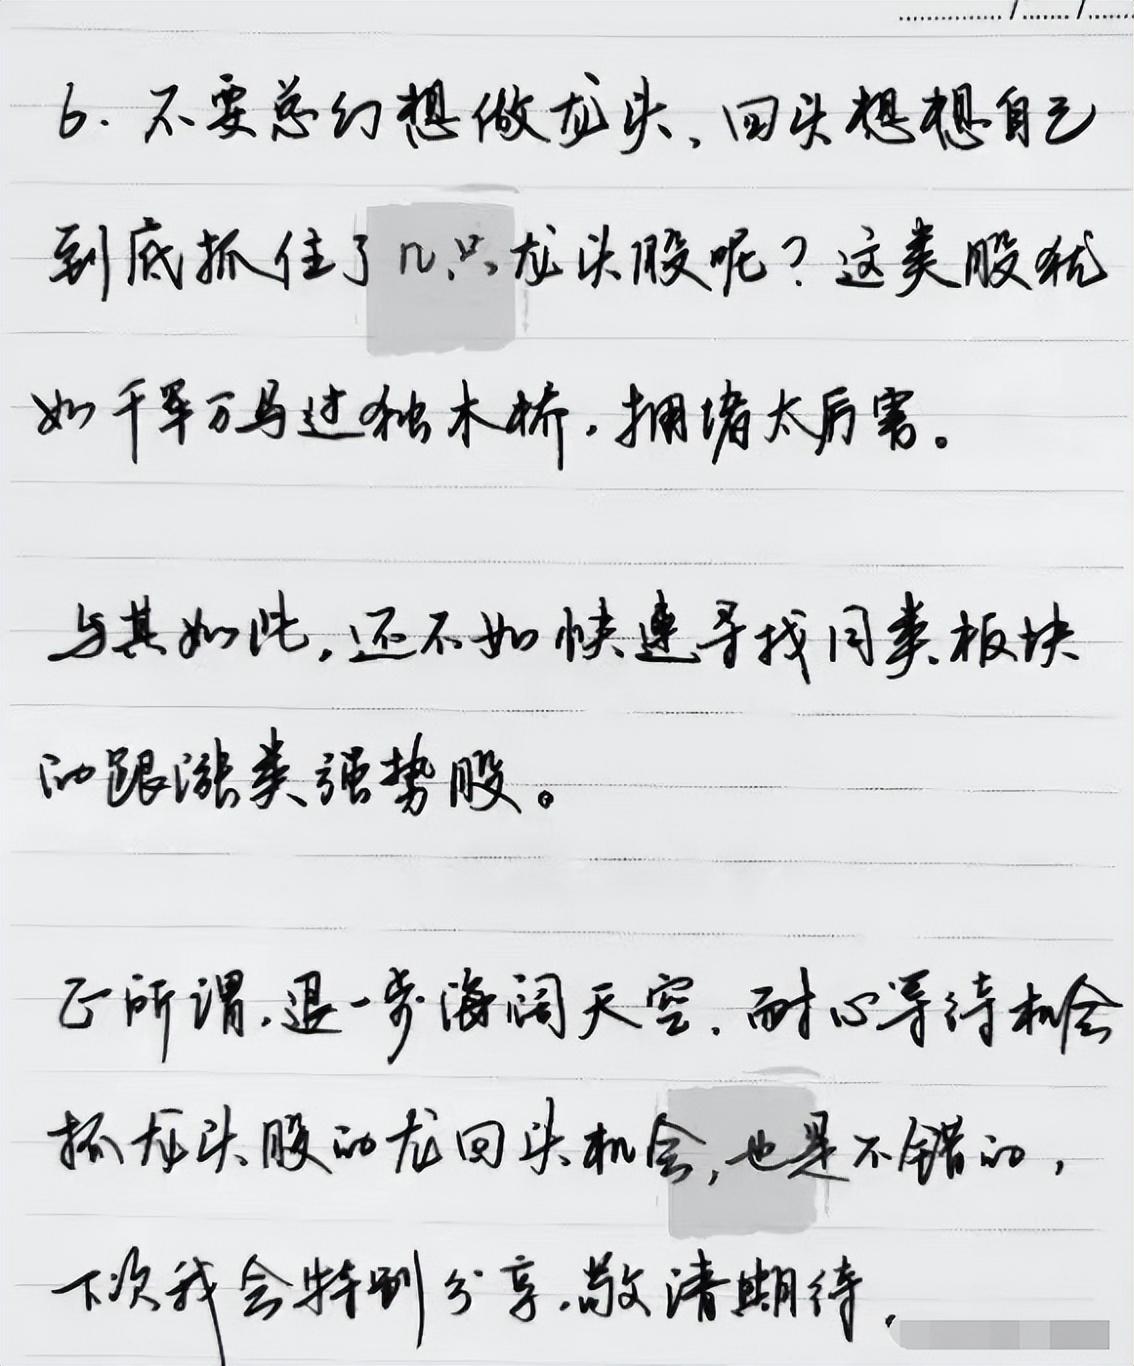 6. 不要总幻想做龙头、回头想想自己
到底抓住了几只龙头股呢？这类股犹
如千军万马过独木桥，拥堵太厉害。
与其如此，还不如快速寻找同类板块
的跟涨类强势股。
正所谓，退一步海阔天空，耐心等待机会
抓龙头股的龙回头机会，也是不错的，
下次我会特别分享，敬请期待。